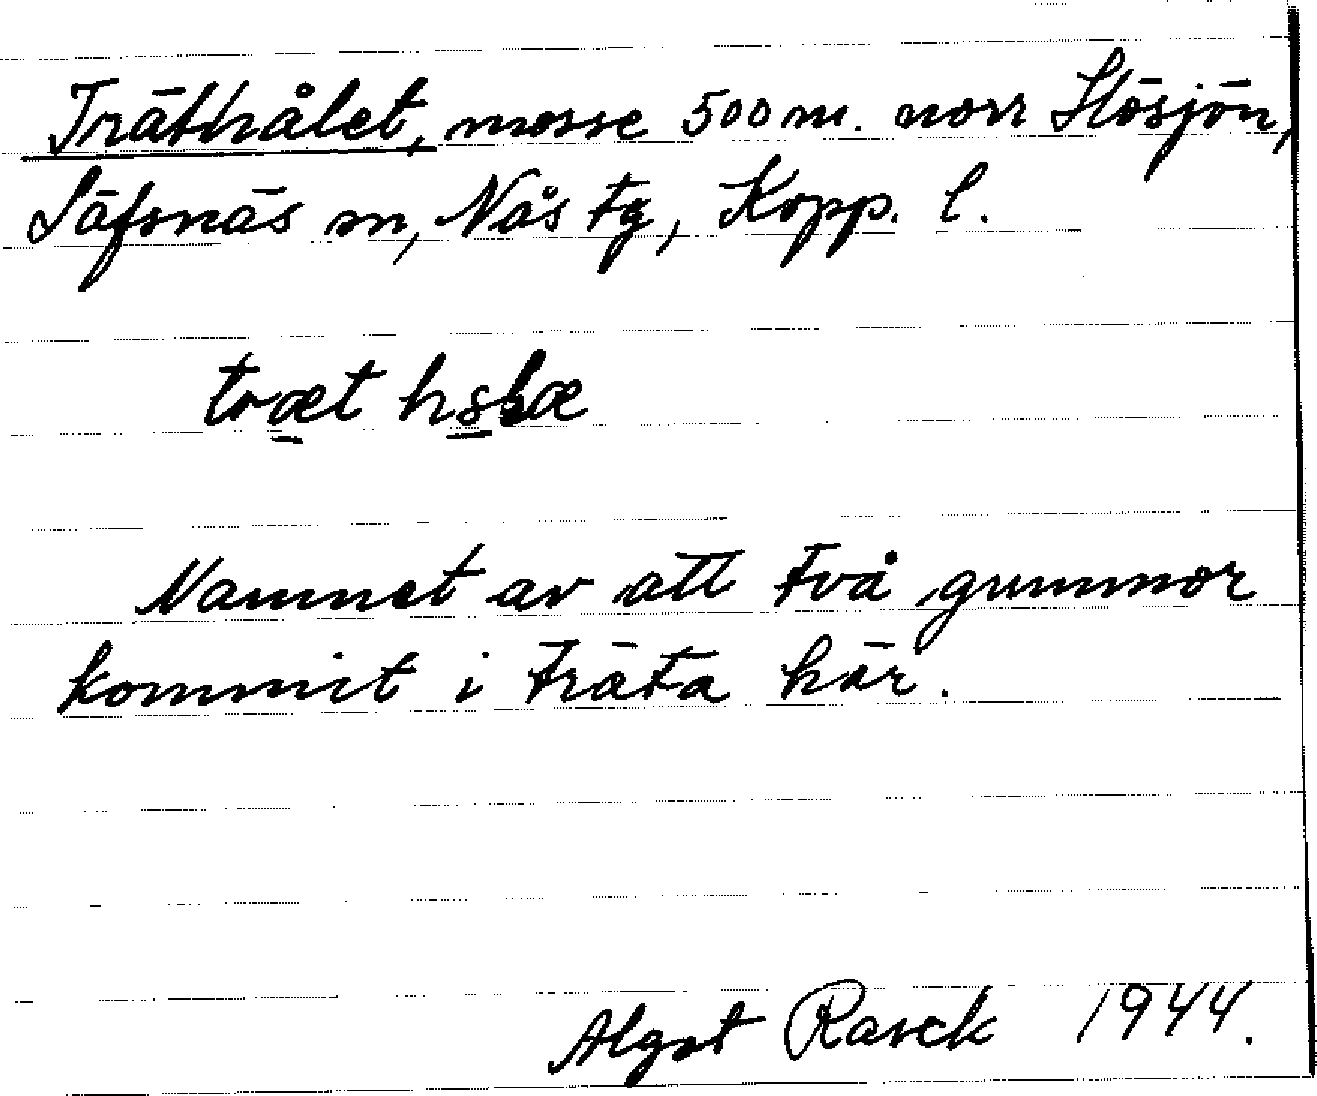 Träthålet, mosse 500 m. norr Hösjön,
Säfsnäs sn, Nås tg, Kopp. l.
træt
Namnet av att två gummor
kommit i träta här.
Algot Rasck 1944.